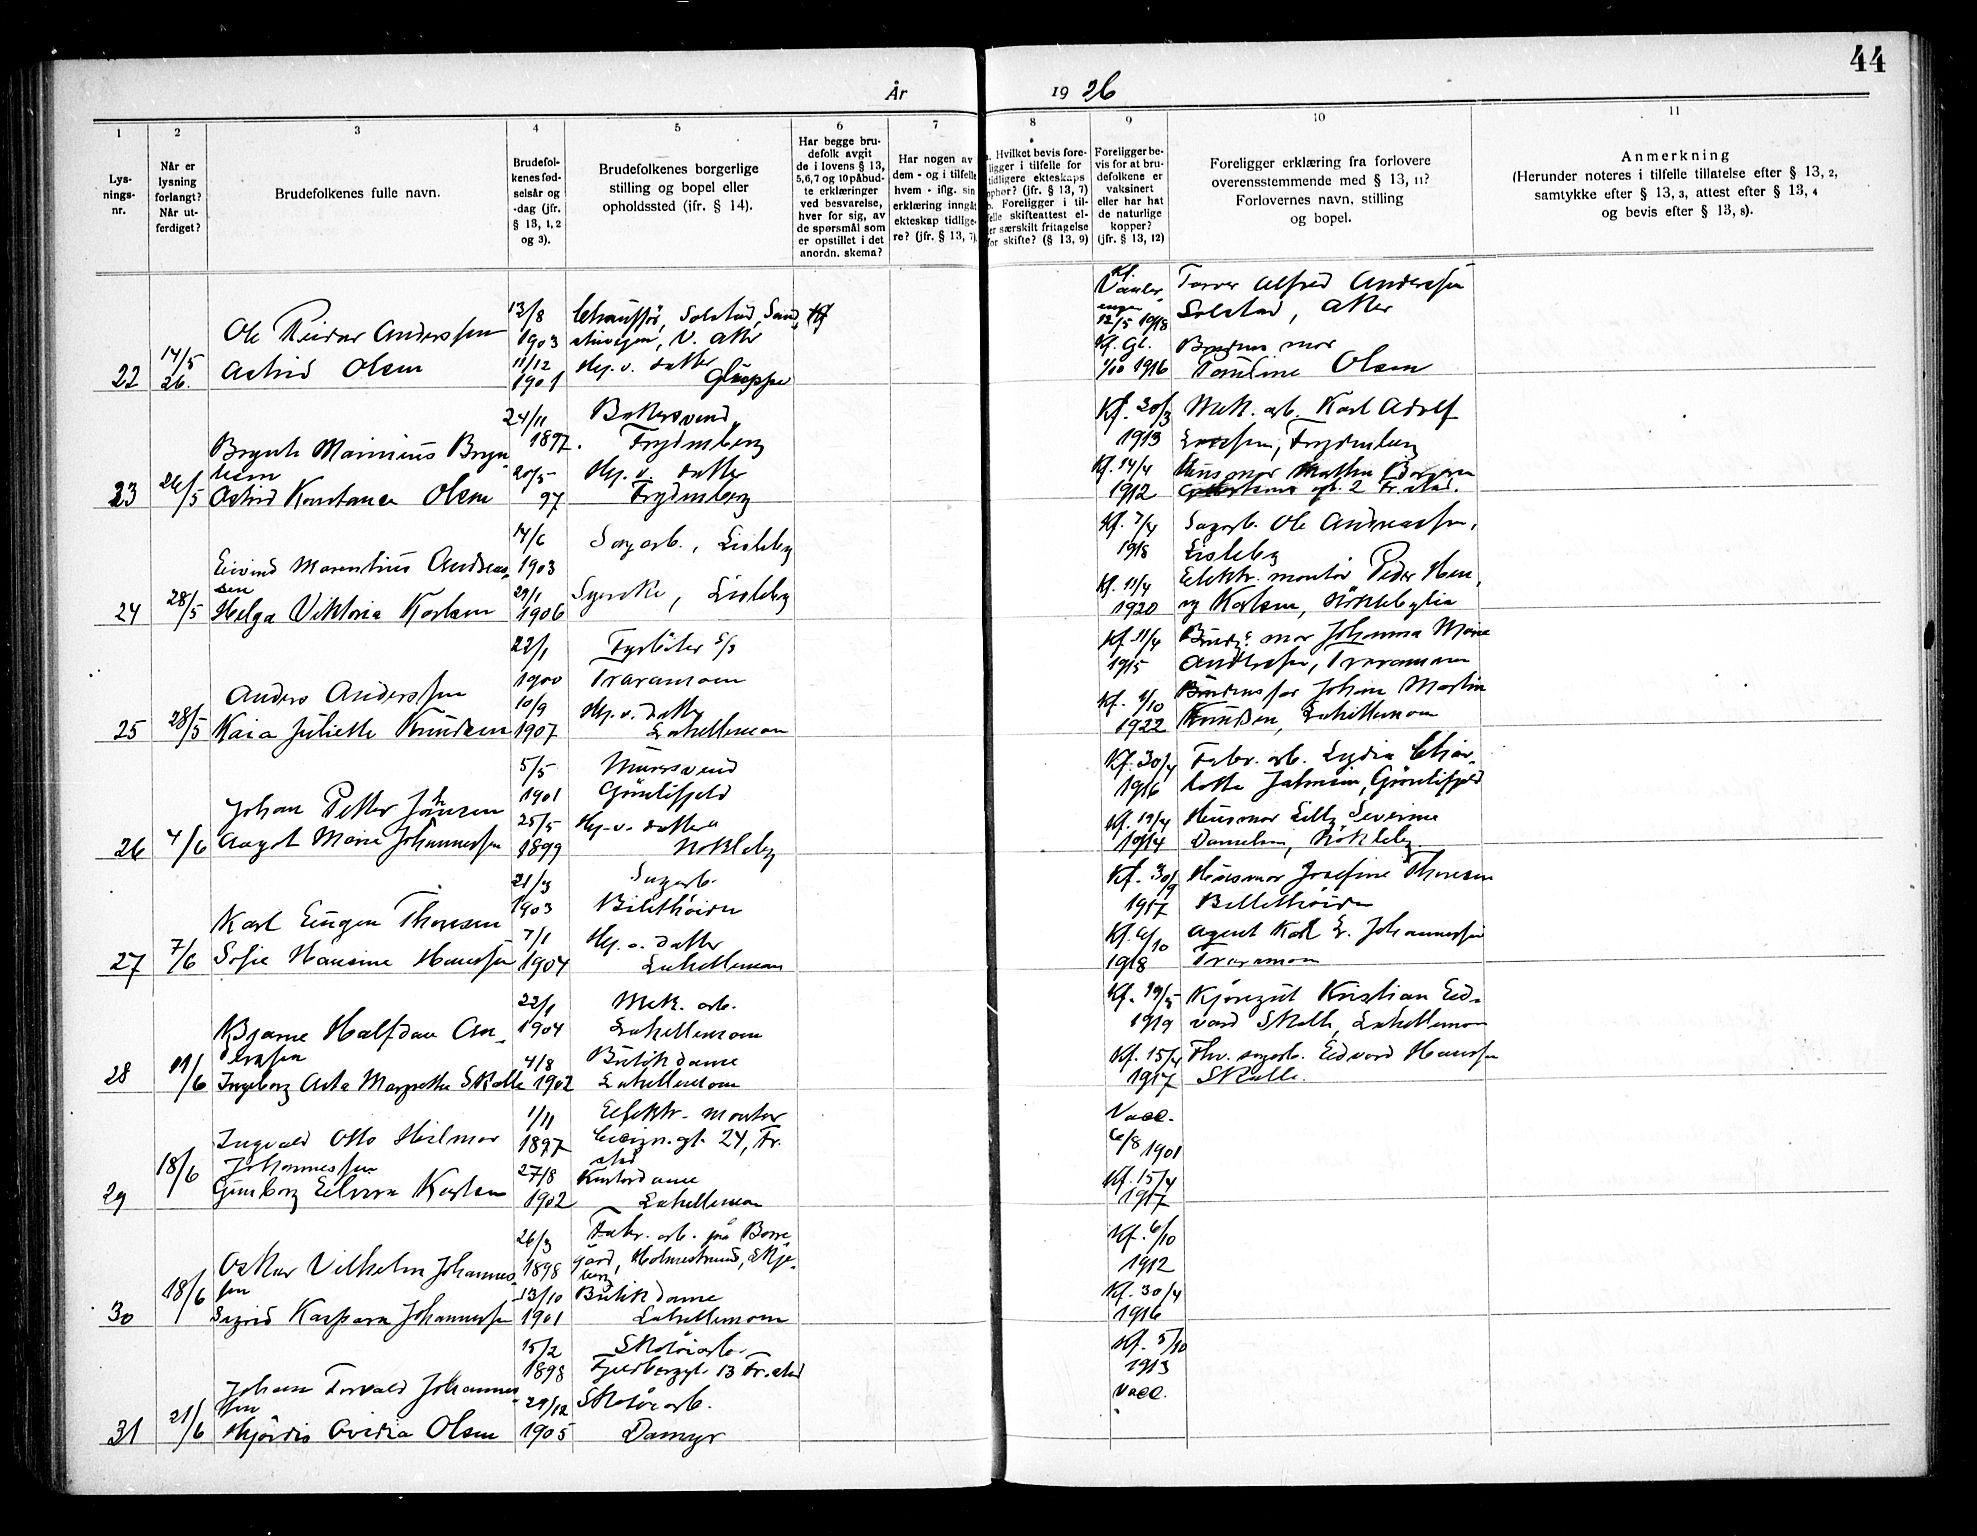 44
År 1926
1 2 3 4 5 6 7 8 9 10 11
Lys-
nings-
nr.
Når er
lysning
forlangt?
Når ut-
ferdiget?
Brudefolkenes fulle navn.
Brudefol-
kenes fød-
selsår og
-dag (jfr.
§ 13, 1, 2
og 3).
Brudefolkenes borgerlige
stilling og bopel eller
opholdssted (ifr. § 14).
Har begge bru-
defolk avgit
de i lovens § 13,
5,6,7 og 10 påbud-
te erklæringer
ved besvarelse,
hver for sig, av
de spørsmål som
er opstillet i det
anordn. skema?
Har nogen av
dem - og i tilfelle
hvem - iflg. sin
erklæring inngåt
ekteskap tidlige-
re? (jfr. § 13, 7).
Hvilket bevis fore-
ligger i tilfelle for
tidligere ekteskaps
ophør? (jfr. § 13, 7)
b. Foreligger i til-
felle skifteattest el-
ler særskilt fritagelse
for skifte? (§ 13, 9)
Foreligger be-
vis for at bru-
defolkene er
vaksinert
eller har hat
de naturlige
kopper?
(jfr. § 13, 12)
Foreligger erklæring fra forlovere
overensstemmende med § 13, 11?
Forlovernes navn, stilling
og bopel.
Anmerkning
(Herunder noteres i tilfelle tillatelse efter § 13, 2,
samtykke efter § 13, 3, attest efter § 13, 4
og bevis efter § 13, 8).
22
14/5
26.
Ole Reidar Anderssen
Astrid Olsen
13/8
1903
11/12
1901
Chauffør, Solstad, Sand
V. Aker
Hj. v. datter
Gluppe
Kf.
12/5 1918
Kf. Gl.
1/10 1916
Alfred Anderssen
Solstad, Aker
Brudens mor
Pauline Olsen
23
26/5
Brynh Marinius Bryn
Astrid Konstance Olsen
24/11
1897.
20/5
97
Bakersvend,
Frydenberg
Hj. v. datter
Frydenberg
Kf. 30/3
1913
Kf. 14/4
1912
Mek. arb. Karl Adolf
Larssen, Frydenberg
Husmor
2 Fr.stad.
24
28/5
Eivind Marentius Andreas-
sen
Helga Viktoria Karlsen
14/6
1903
29/1
1906
Sagarb., Lisleby
Syerske, Lisleby
Kf. 7/4
1918
Kf. 11/4
1920
Sagarb. Ole Andreassen,
Lisleby
Elektr. montør Peder Hen-
ry Karlsen, Nøklebylia
25
28/5
Anders Anderssen
Kaia Juliette Knudsen
22/1
1900
10/9
1907
Fyrbøter S/S
Traramoen
Hj. v. datter
Labellemoen
Kf. 11/4
1915
Kf. 1/10
1922
Brudg. mor Johanna Marie
Anderssen, Traramoen
Brudens far Johan Martin
Knudsen, Labellemoen
26
4/6
Johan Petter Jansen
Aagot Marie Johannessen
5/5
1901
25/5
1899
Murersvend
Grønlifjeld
Hj. v. datter
Nokleby
Kf. 30/4
1916
Kf. 19/4
1914
Fabr. arb. Lydia Char-
lotte Jahnsen, Grønlifjeld
Husmor Lilly Severine
Danielsen, Nökleby.
27
7/6
Karl Eugen Thoresen
Sofie Hansine Hanssen
21/3
1903
7/1
1904
Sagarb.
Hj. v. datter
Labellemoen
Kf. 30/9
1917
Kf. 6/10
1918
Husmor Josefine Thoresen
Agent Karl E. Johannessen
Traramoen
28
11/6
Bjarne Halfdan An-
derssen
Ingeborg Asta Margrethe Skolle
22/1
1904
4/8
1902
Mek. arb.
Labellemoen
Butikdame
Labellemoen
Kf. 19/5
1919
Kf. 15/4
1917
Kjøregut Kristian Ed-
vard Skolle, Labellemoen
Fhv. sagarb. Edvard Hanssen
Skolle.
29
18/6
Ingvald Otto Hilmar
Johannessen
Gunborg Elvira Karlsen
1/11
1897
27/8
1902
Elektr. montør
24, Fr.
stad
Kontordame
Labellemoen
Vacc.
6/8 1901
Kf. 15/4
1917
30
18/6
Oskar Vilhelm Johannes-
sen
Sigrid Kaspara Johannessen
26/3
1898
13/10
1901
Fabr. arb. på Borre-
gård, Holmestrand, Skje-
berg
Butikdame
Labellemoen
Kf. 6/10
1912
Kf. 30/4
1916
31
21/6
Johan Torvald Johannes-
sen
Hjørdis Ovidia Olsen
15/2
1898
29/12
1905
Skotøiarb.
Fjeldberggt. 13 Fr.stad
Skotøiarb.
Damyr
Kf. 5/10
1913
Vacc.